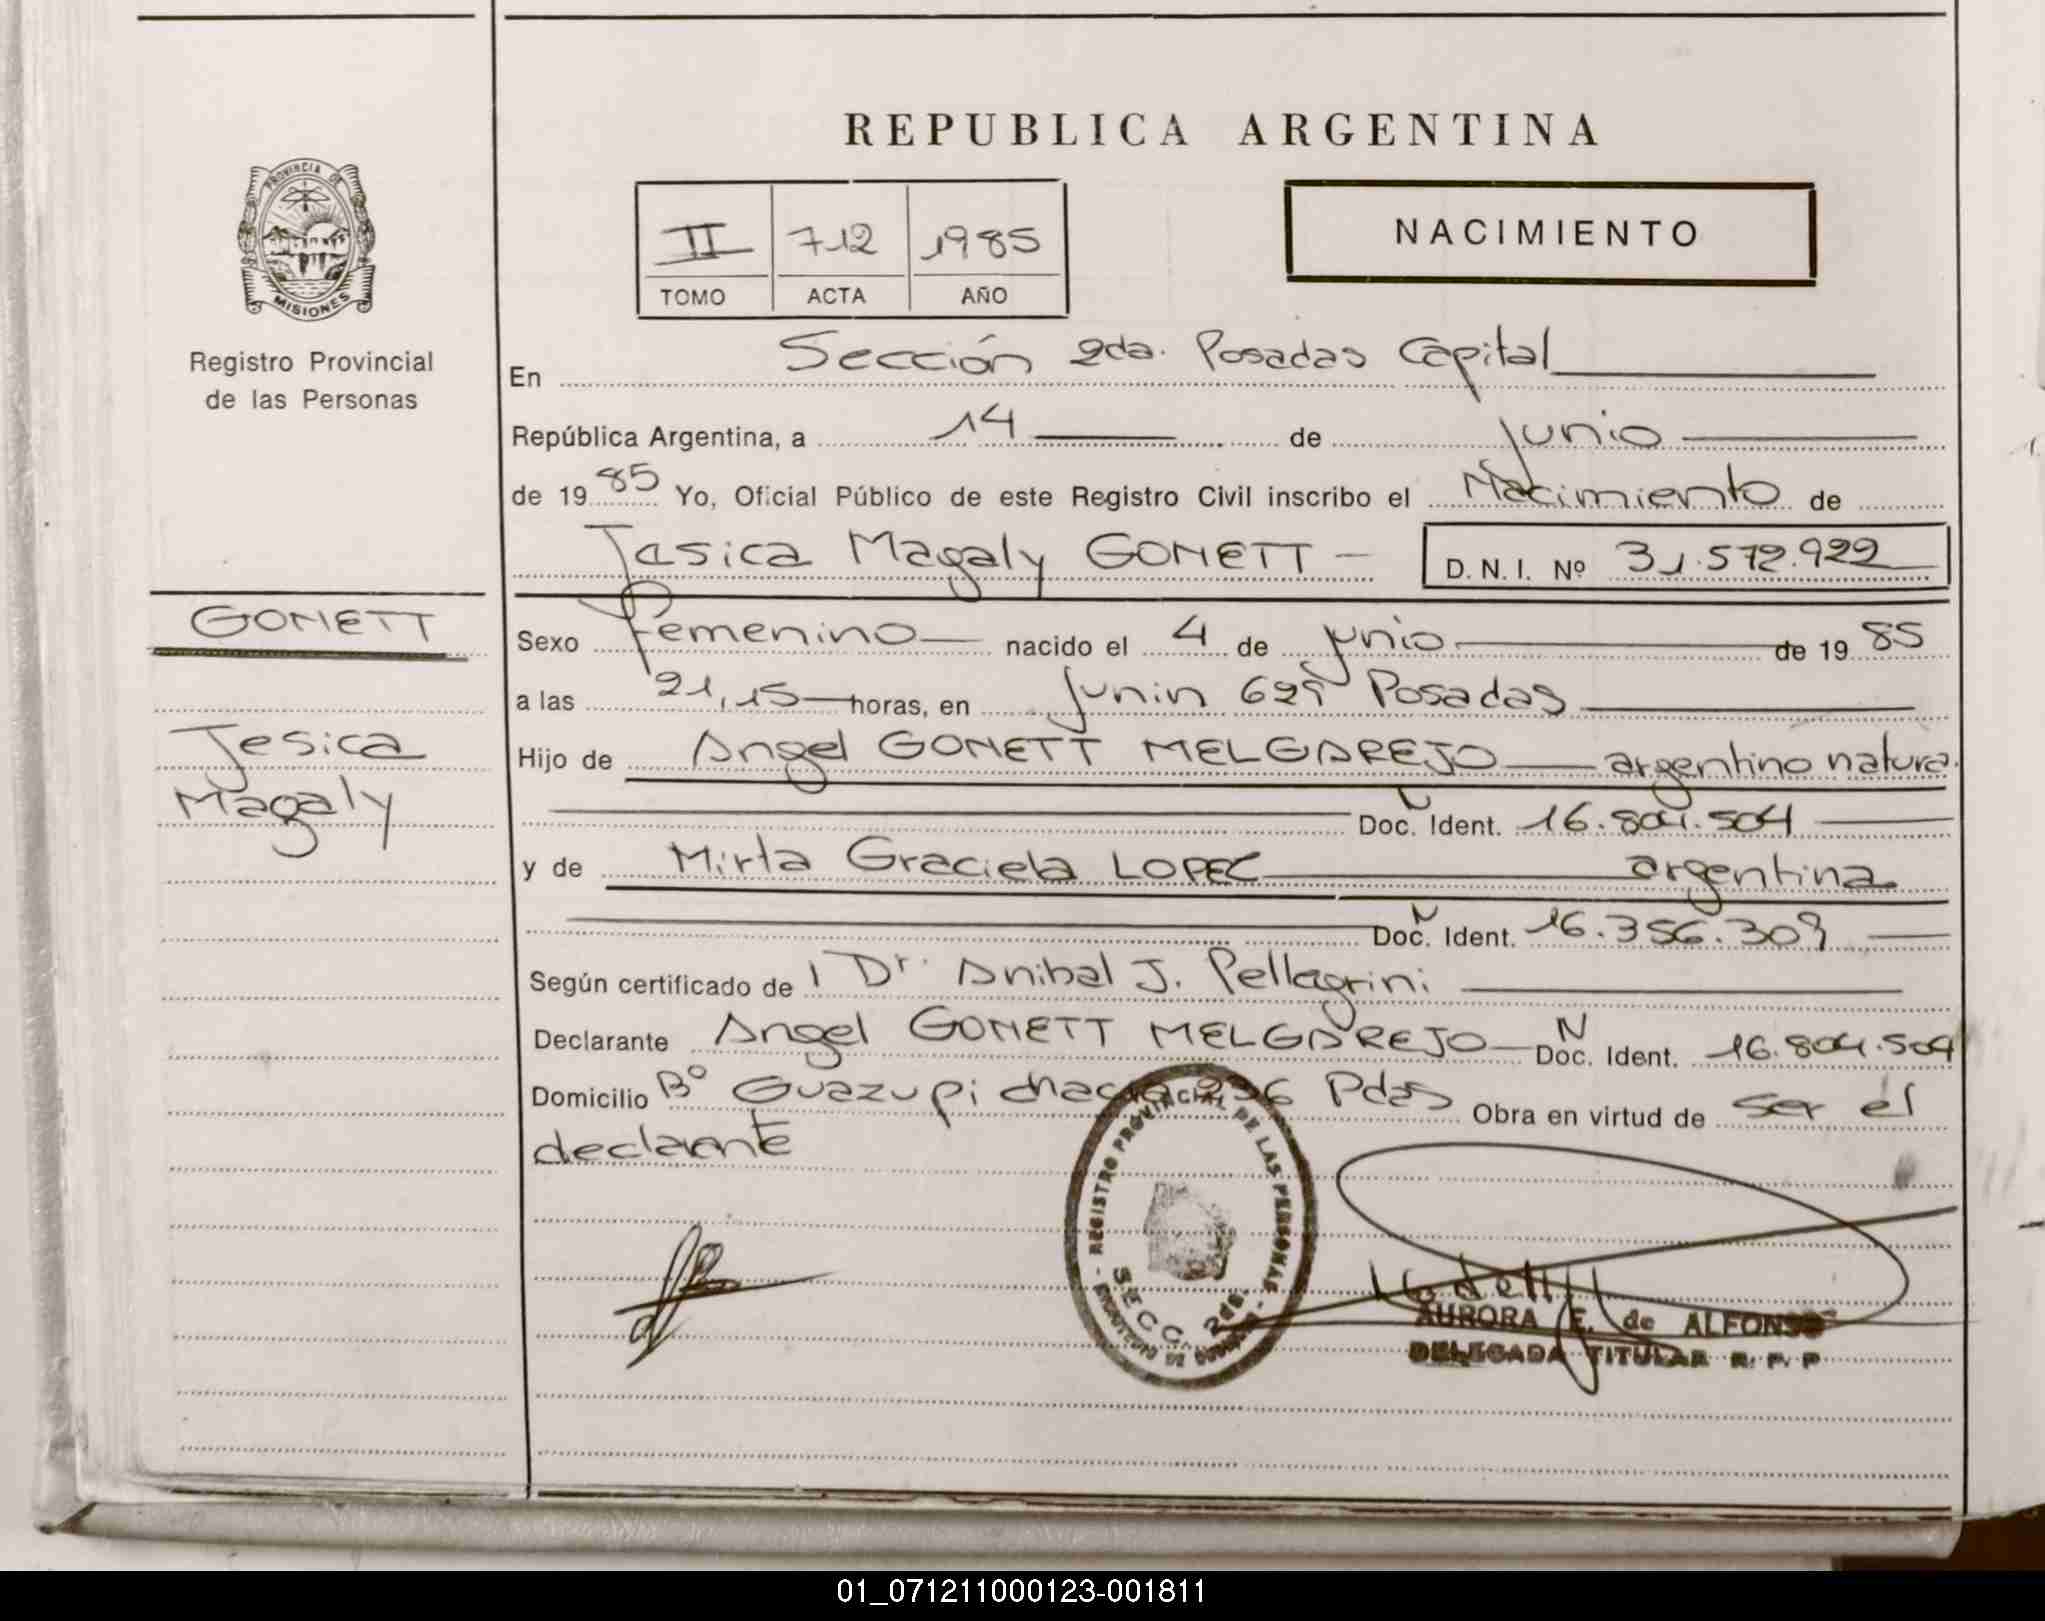 REPUBLICA ARGENTINA
PROVINCIA DE
MISIONES
Registro Provincial
de las Personas
II 712 1985
TOMO ACTA AÑO
NACIMIENTO
En Sección 2da. Posadas Capital
República Argentina, a 14 de junio
de 19 85 Yo, Oficial Público de este Registro Civil inscribo el Nacimiento de
Jesica Magaly GONETT D. N. I. Nº 31.572.922
GONETT
Jesica
Magaly
Sexo Femenino nacido el 4 de junio de 19 85
a las 21,15 horas, en Junin Posadas
Hijo de Angel GONETT MELGAREJO argentino natura.
Doc. N Ident. 16.804.504
y de Mirta Graciela LOPEZ argentina
Doc. N Ident. 16.356.309
Según certificado de Dr. Anibal J. Pellagrini
Declarante Angel GONETT MELGAREJO Doc. N Ident. 16.804.504
Domicilio Bº Guazupi chacra 236 Pdas Obra en virtud de ser el
declarante
REGISTRO PROVINCIAL DE LAS PERSONAS
SECC. 2da.
AURORA E. de ALFONSO
DELEGADA TITULAR R. P. P
01_071211000123-001811